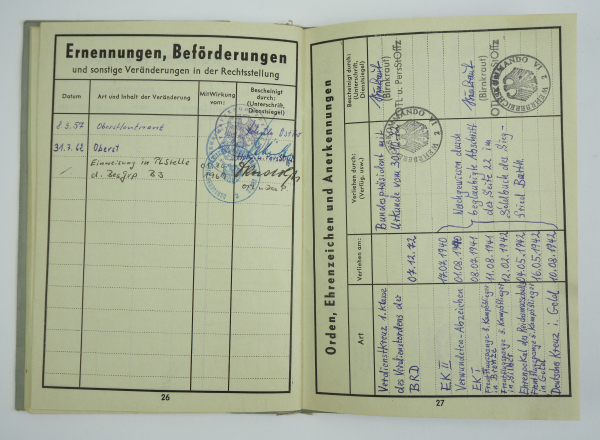 Ernennungen, Beförderungen
und sonstige Veränderungen in der Rechtsstellung
Datum
Art und Inhalt der Veränderung
Mit Wirkung vom:
Bescheinigt durch: (Unterschrift, Dienstsiegel)
8.3.57 Oberstleutnant
31.7.62 Oberst
Einweisung in Pl.Stelle
d. Bes.grp B3
26
Orden, Ehrenzeichen und Anerkennungen
Art
Verliehen am:
Verliehen durch: (Verfüg. usw.)
Bescheinigt durch: (Unterschrift, Dienstsiegel)
Verdienstkreuz 1. Klasse
des Verdienstordens der
BRD 07.12.72 Bundespräsident mit
Urkunde vom
(Birnkraut)
OTL u. PersStOffz
EK II 17.07.1940
Verwundeten-Abzeichen 01.08.1940
EK I 08.07.1941
Frontflugspange f. Kampfflieger
in Bronze 11.08.1941
Frontflugspange f. Kampfflieger
in Silber 12.02.1942
Ehrenpokal 04.05.1942
Frontflugspange f. Kampfflieger
in Gold 16.05.1942
Deutsches Kreuz i. Gold 10.08.1942
Nachgewiesen durch
beglaubigte Abschrift
der Seite 22 im
Soldbuch des Sieg-
fried Barth
(Birnkraut)
OTL u. PersStOffz
27